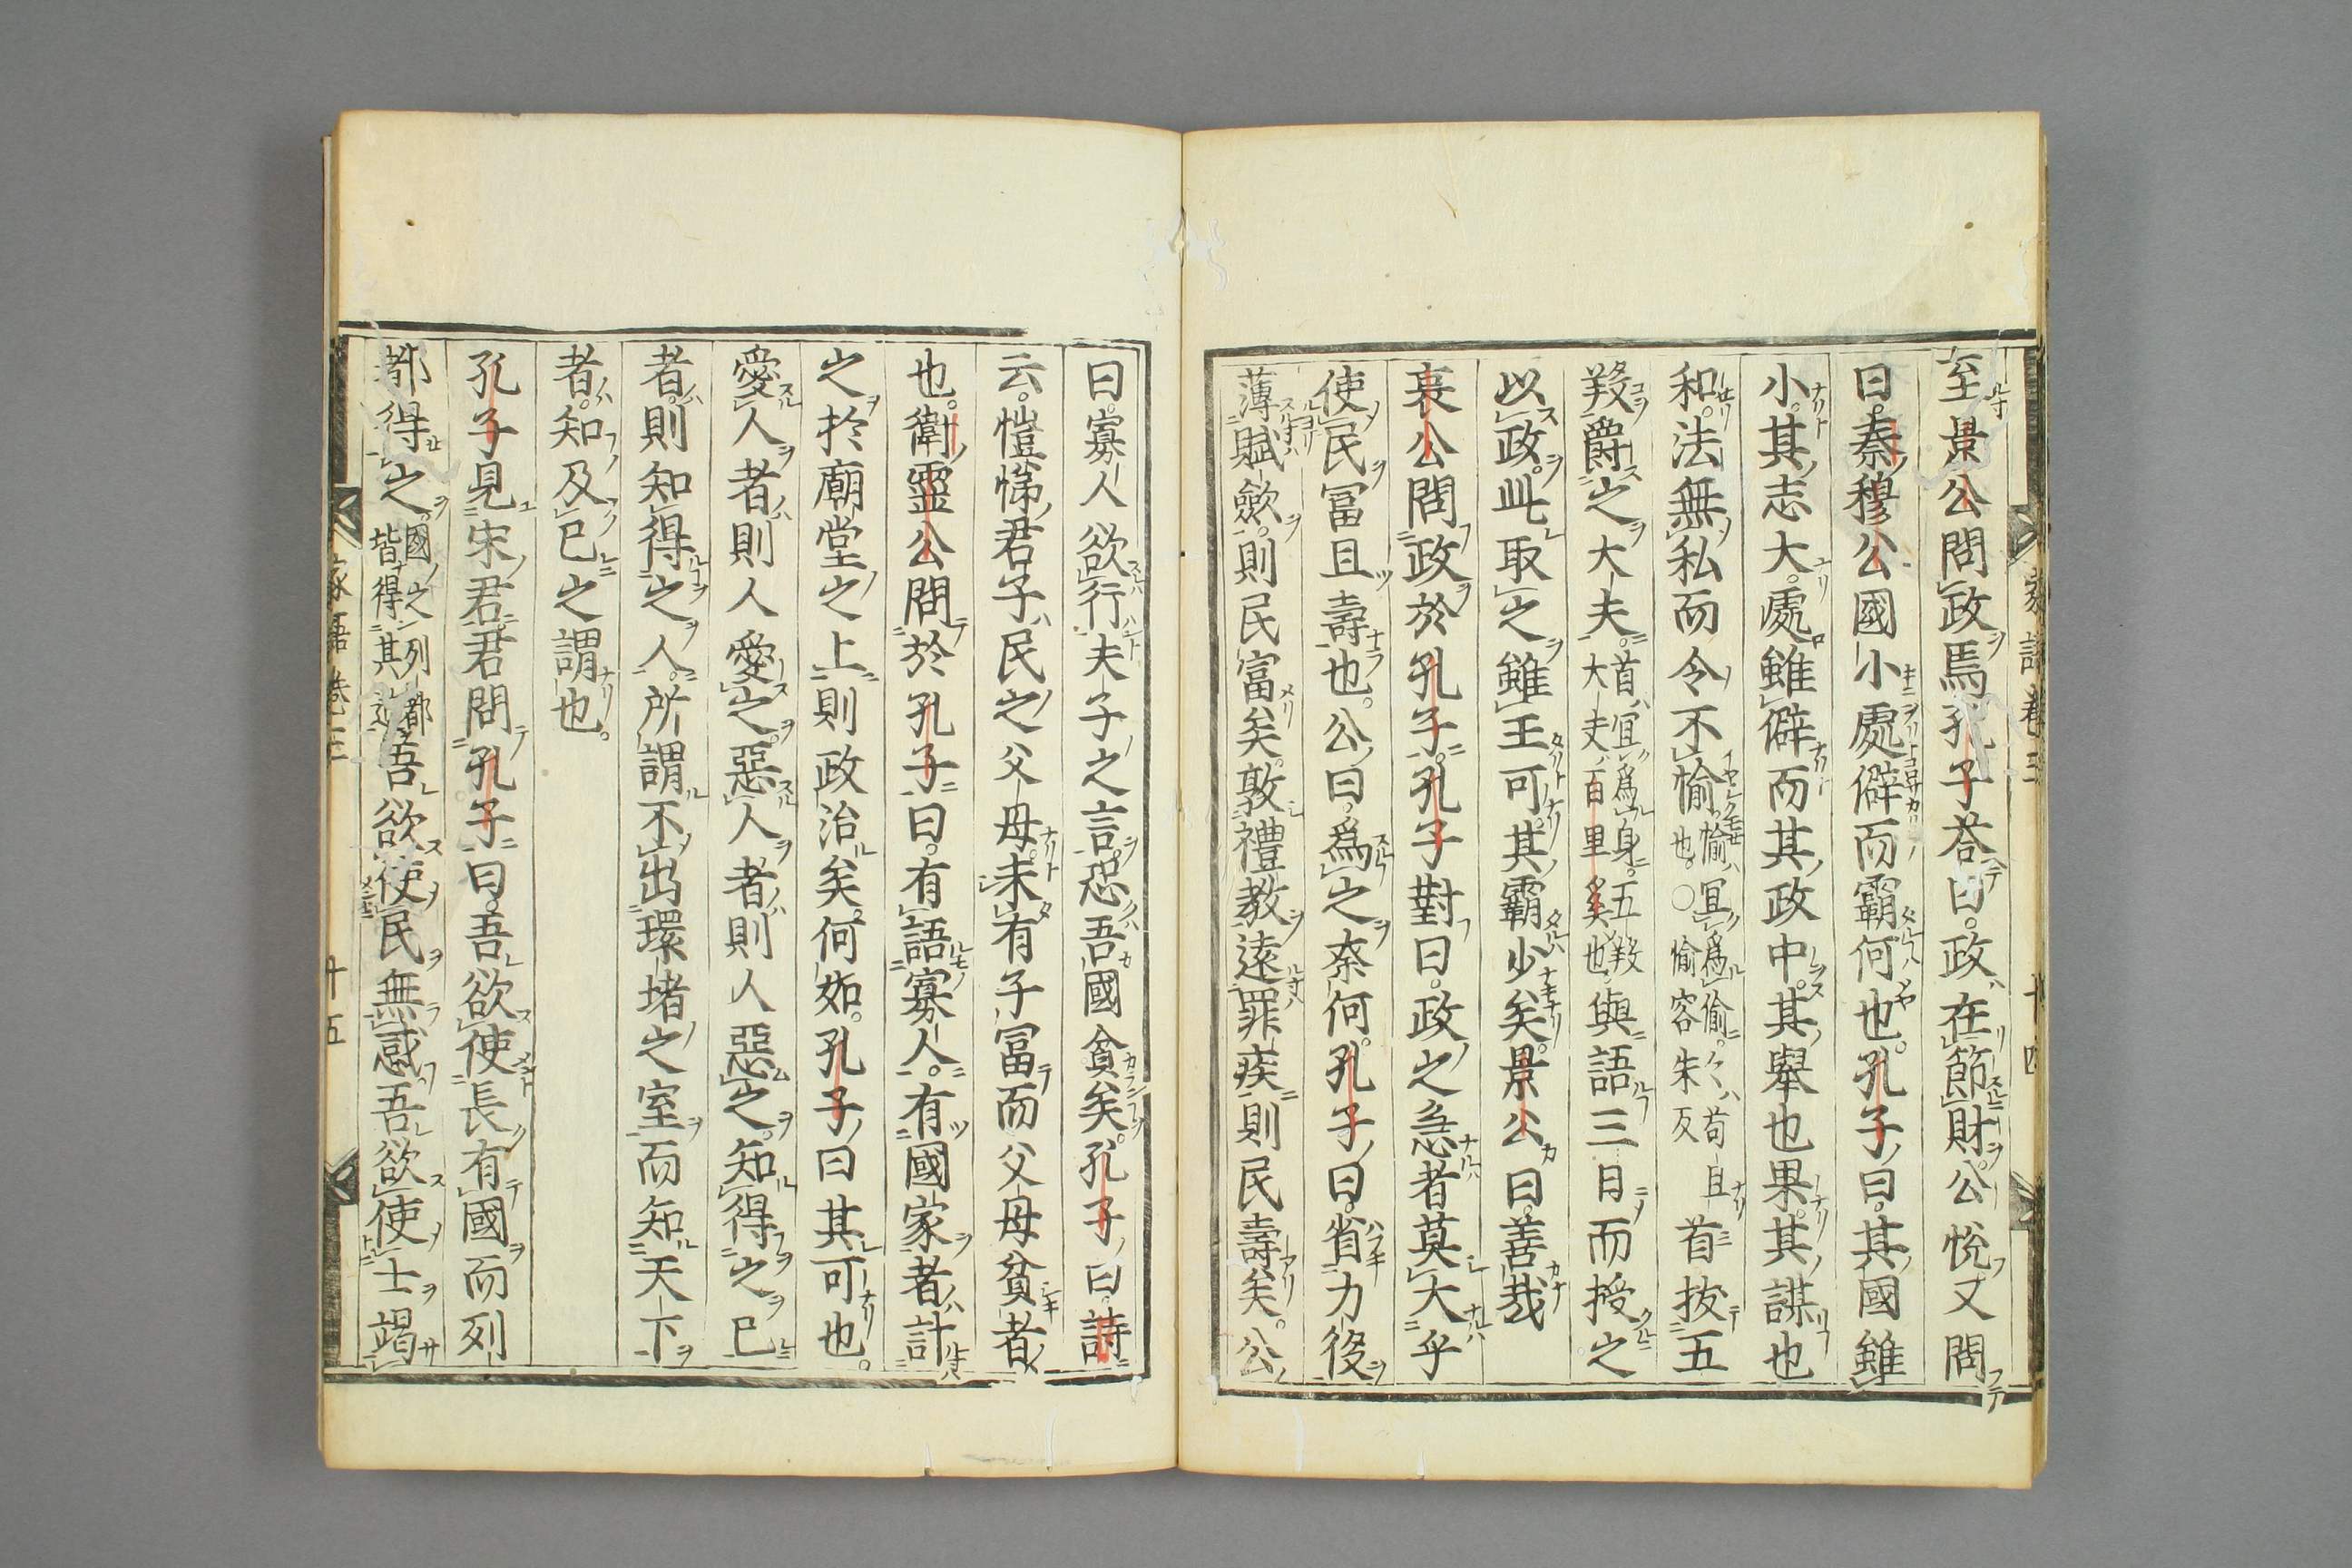 至景公問政焉孔子荅曰。政在節財。公悅又問
曰。秦穆公國小處僻而霸何也。孔子曰。其國雖
小。其志大。處雖僻而其政中。其舉也果。其謀也
和。法無私而令不愉。愉宜爲偷。〻苟且也。○愉容朱反首拔五
羖爵之大夫。首宜爲身。五羖大夫百里奚也與語三日而授之
以政。此取之雖王可。其霸少矣。景公曰。善哉
哀公問政於孔子。孔子對曰。政之急者莫大乎
使民冨且壽也。公曰。爲之柰何。孔子曰。省力役
薄賦歛。則民富矣。敦禮教遠罪疾則民壽矣。公
家語卷三
十四
曰。寡人欲行夫子之言。恐吾國貧矣。孔子曰。詩
云。愷悌君子。民之父母。未有子冨而父母貧者
也。衛靈公問於孔子曰。有語寡人。有國家者計
之於廟堂之上則政治矣。何如。孔子曰其可也。
愛人者則人愛之。惡人者則人惡之。知得之已
者。則知得之人。所謂不出環堵之室而知天下
者。知及已之謂也。
孔子見宋君。君問孔子曰。吾欲使長有國而列
都得之。國之列都皆得其道吾欲使民無惑吾欲使士竭
家語卷三
十五